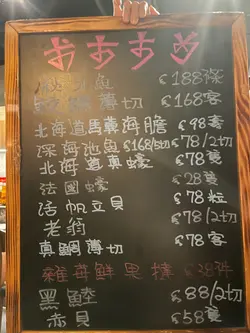 おすすめ
魚 €188條
薄切 €168客
北海道馬糞海膽 €98隻
深海池魚 €168/5切 €78/2切
北海道真蠔 €78隻
法國蠔 €28隻
活帆立貝 €78粒
老翁 €78/2切
真鯛薄切 €78客
雜苺鮮果撻 €38件
黑鮭 €88/2切
赤貝 €58隻